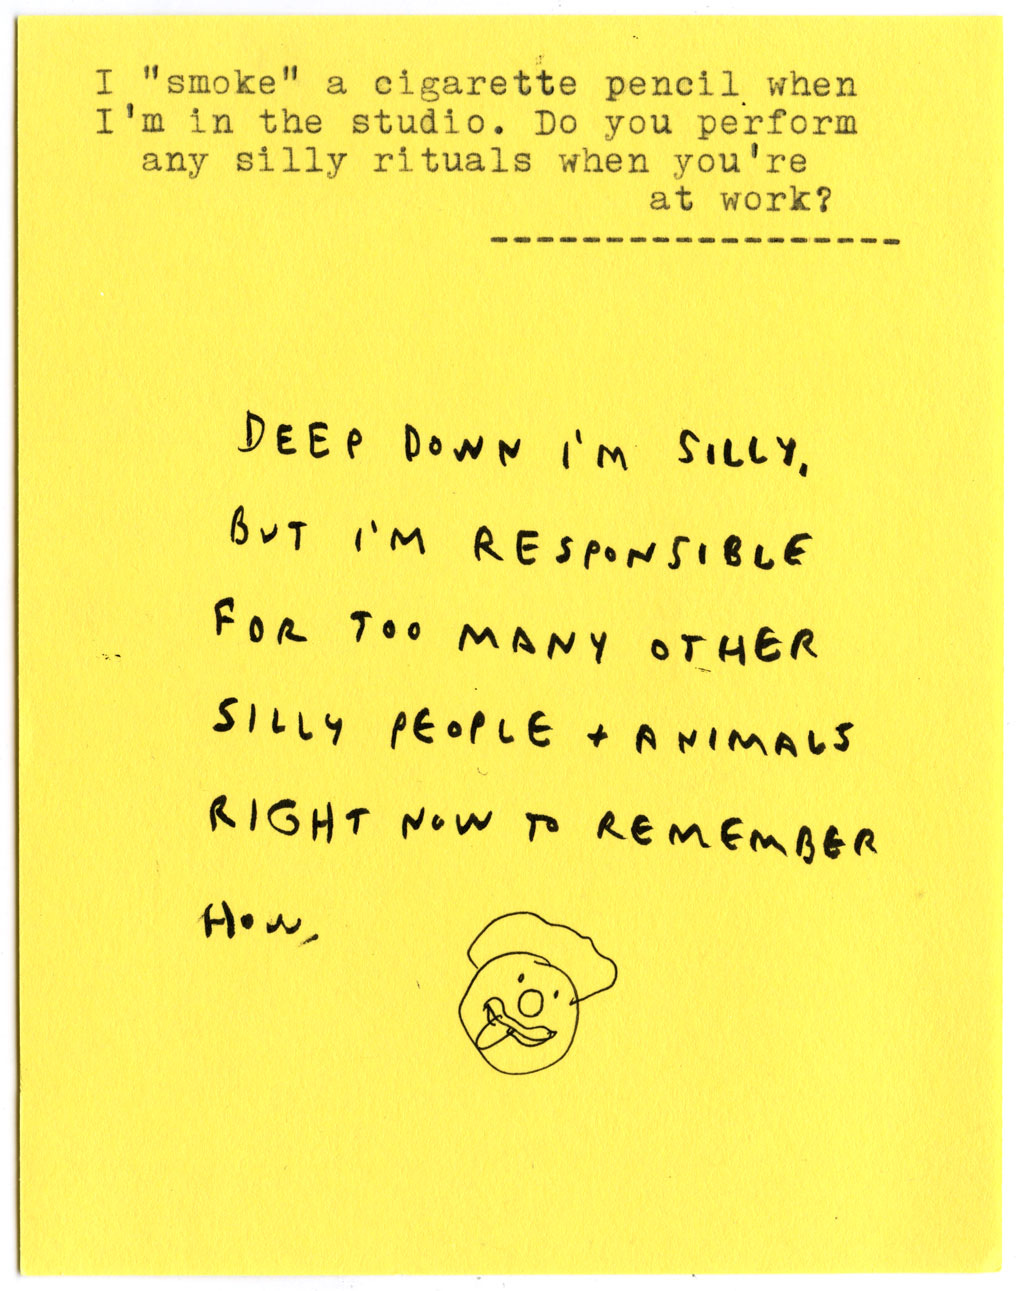 I "smoke" a cigarette pencil when
I'm in the studio. Do you perform
any silly rituals when you're
at work?
------------------
DEEP DOWN I'M SILLY,
BUT I'M RESPONSIBLE
FOR TOO MANY OTHER
SILLY PEOPLE + ANIMALS
RIGHT NOW TO REMEMBER
HOW,